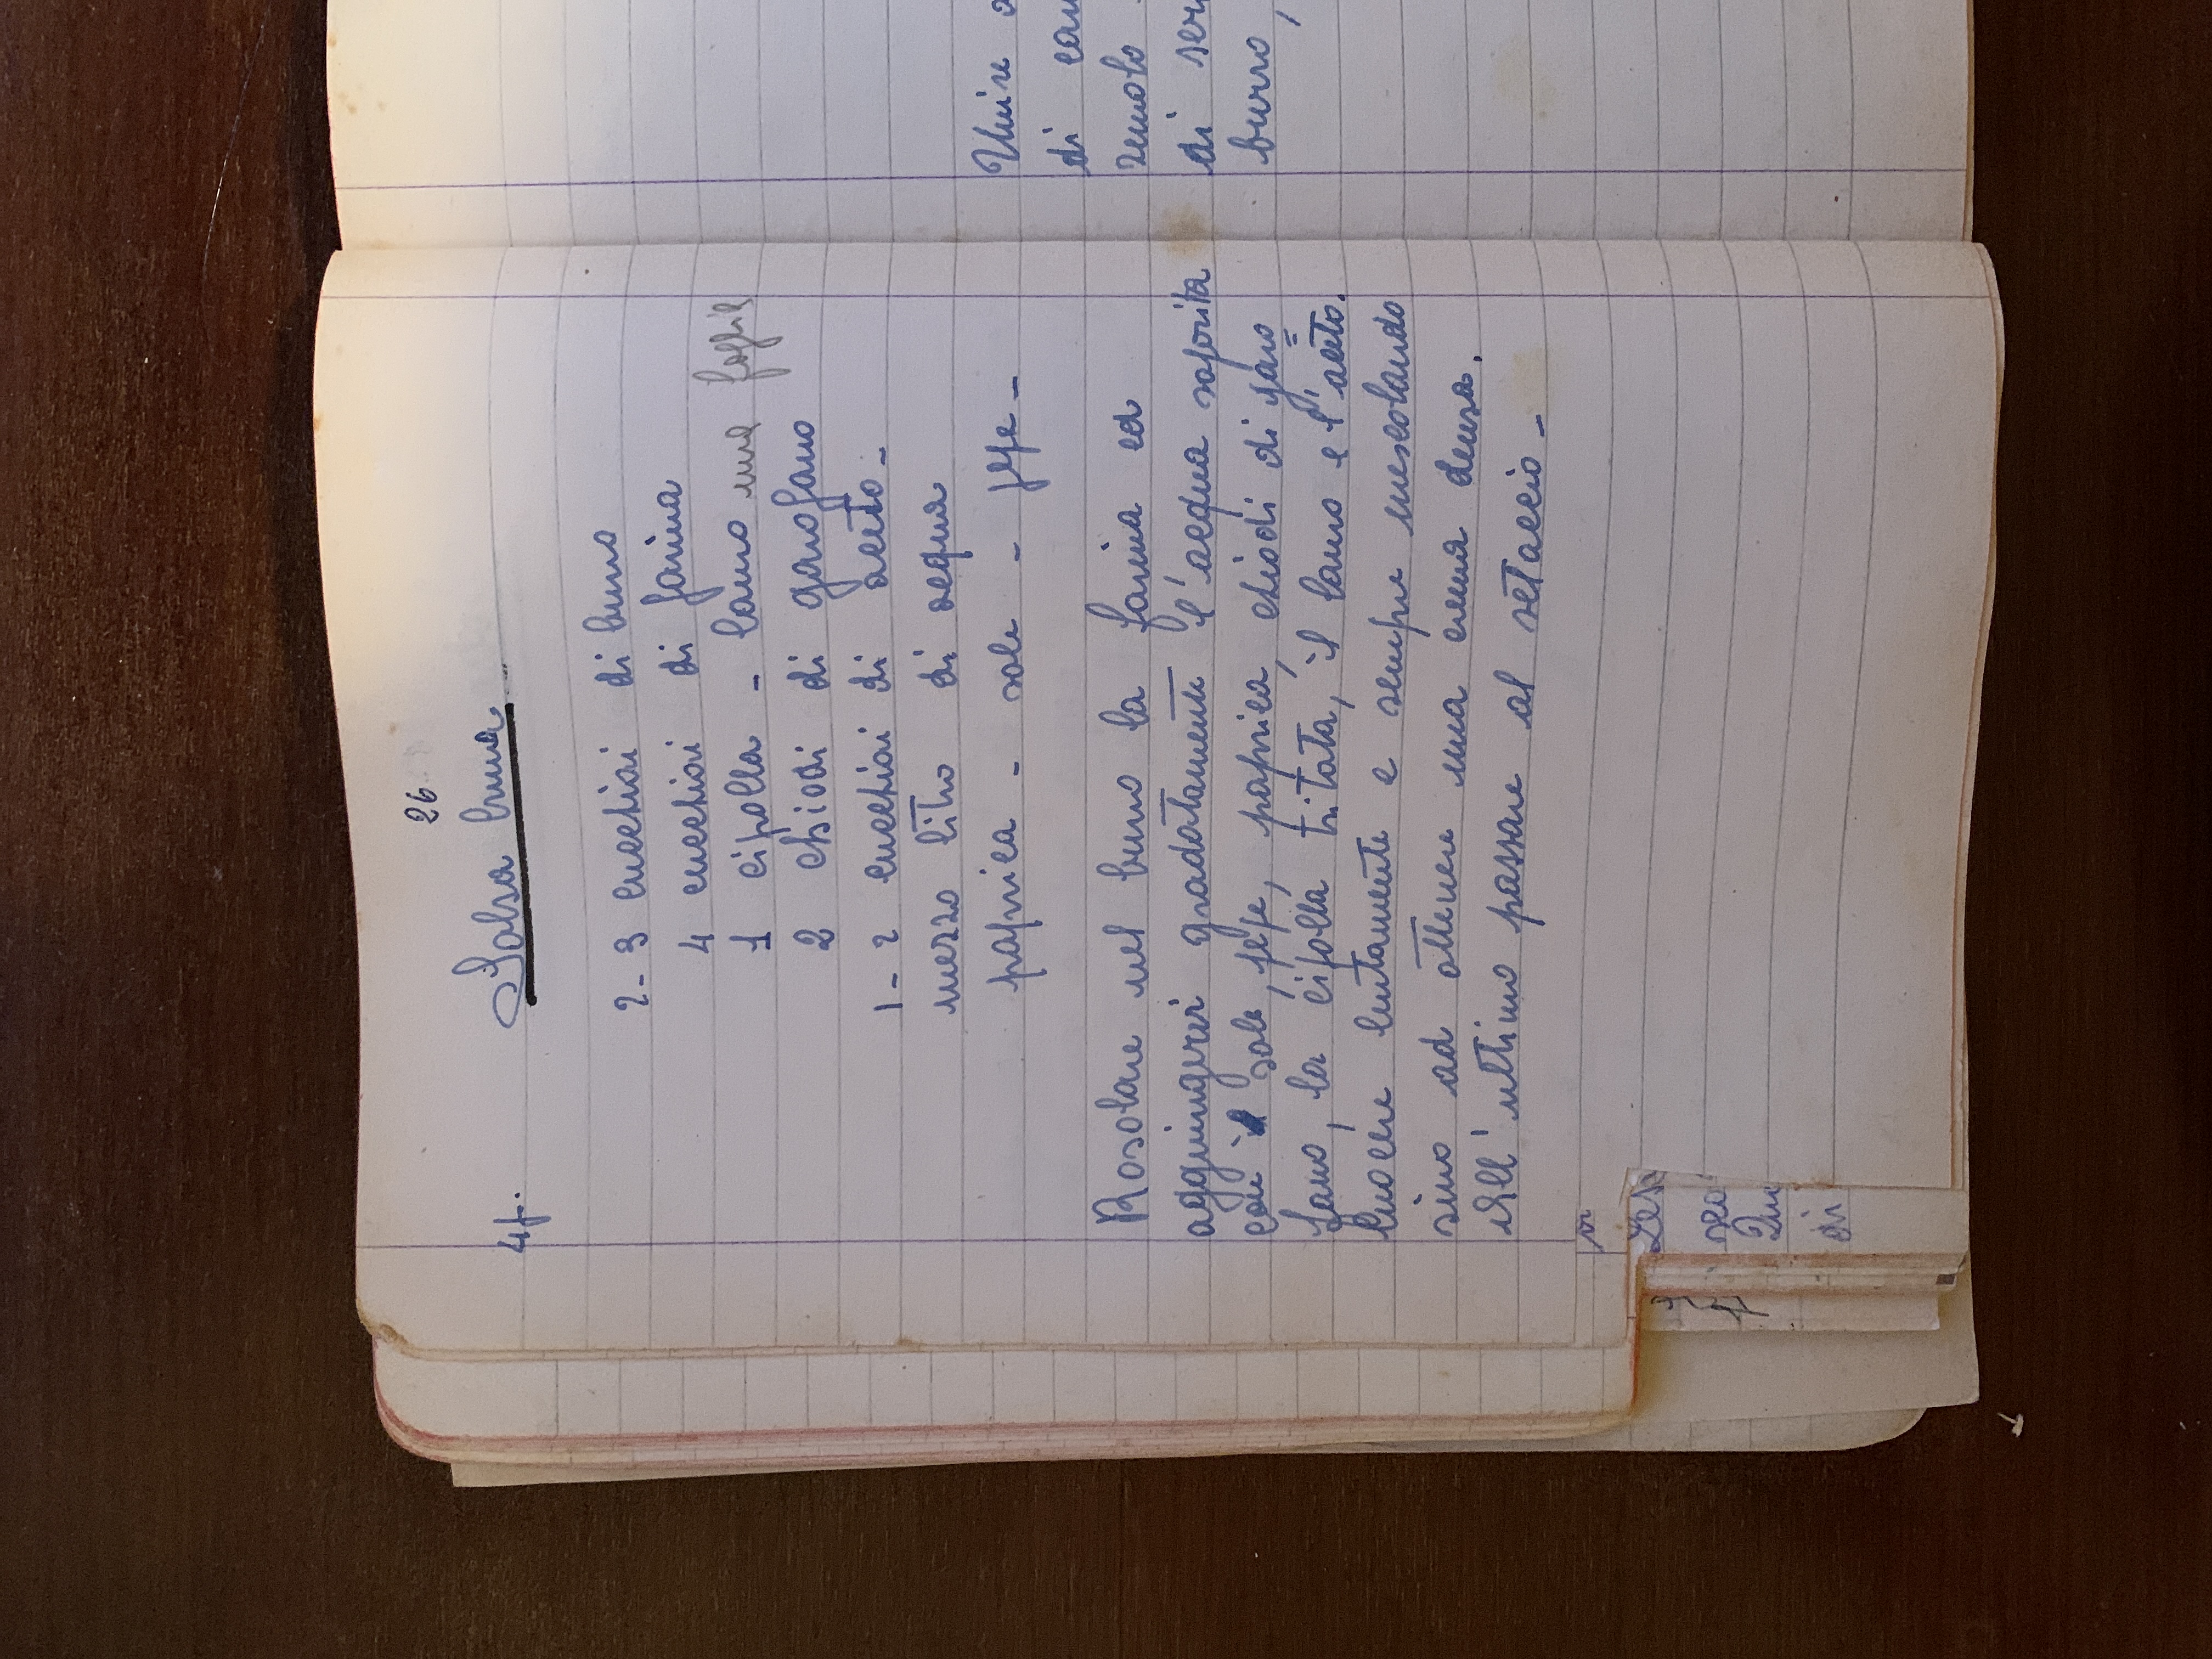 26
4p. Salsa bruna
2-3 cucchiai di burro
4 cucchiai di farina
1 cipolla - lauro una foglia
2 chiodi di garofano
1-2 cucchiai di aceto -
mezzo litro di acqua
paprica - sale - pepe -
Rosolare nel burro la farina ed
aggiungervi gradatamente l'acqua saporita
con il sale, pepe, paprica, chiodi di garo
fano, la cipolla tritata, il lauro e l'aceto.
Cuocere lentamente e sempre mescolando
sino ad ottenere una crema densa.
All'ultimo passare al setaccio -
di
Unire
di
di
burro,